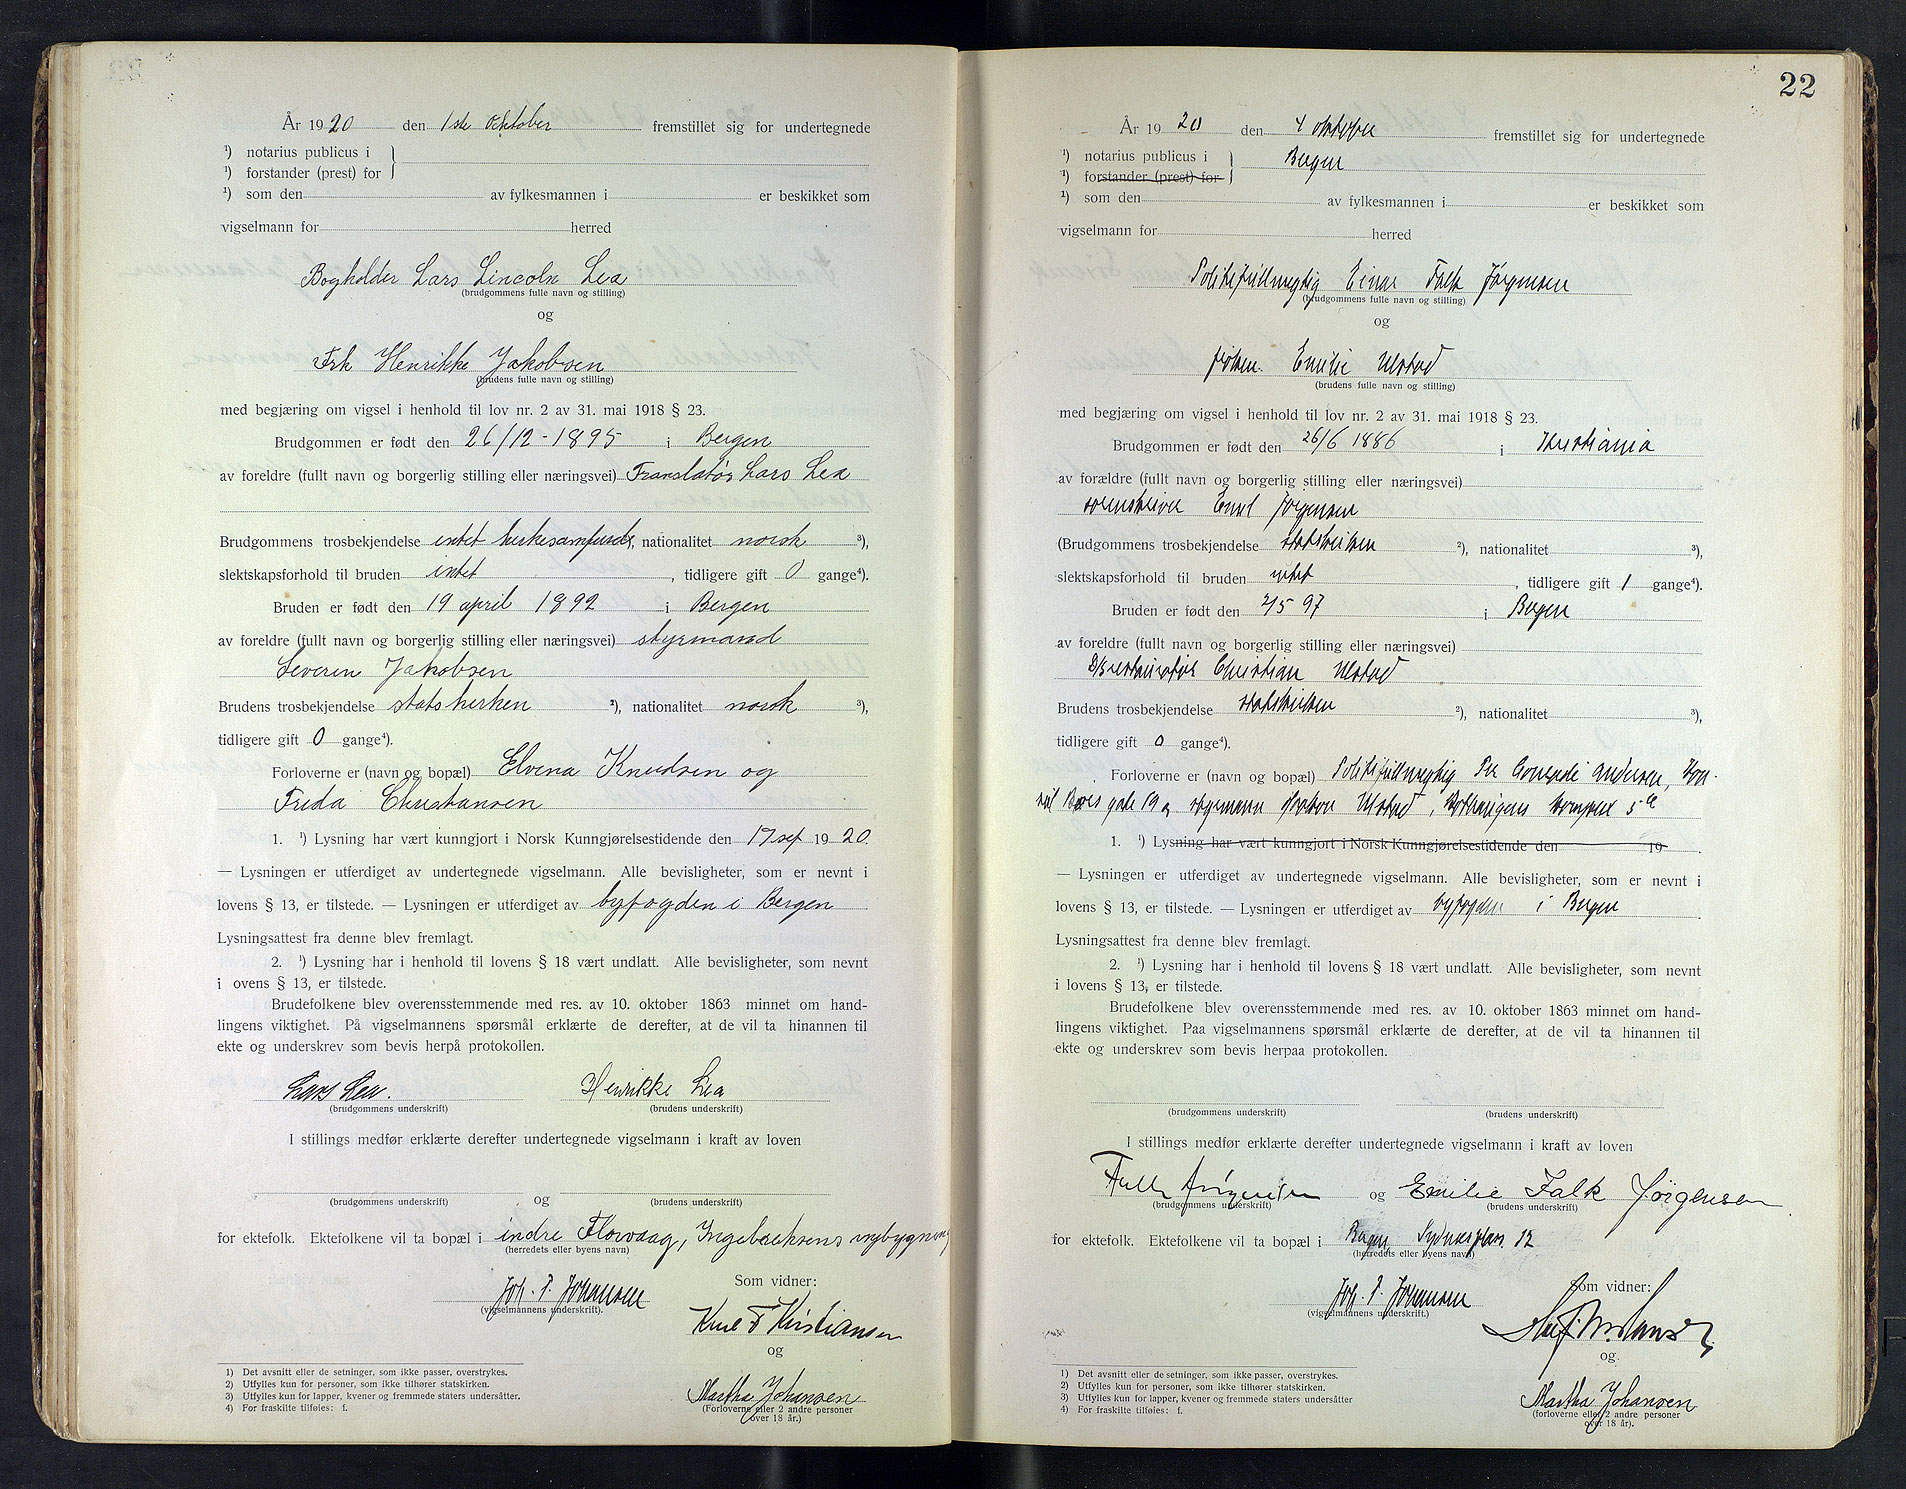 År 1920 den 1ste Oktober fremstillet sig for undertegnede
¹) notarius publicus i
¹) forstander (prest) for
¹) som den av fylkesmannen i er beskikket som
vigselmann for herred
Bogholder Lars Lincoln Lea
(brudgommens fulle navn og stilling)
og
Frk Henrikke Jakobsen
(brudens fulle navn og stilling)
med begjæring om vigsel i henhold til lov nr. 2 av 31. mai 1918 § 23.
Brudgommen er født den 26/12 - 1895 i Bergen
av foreldre (fullt navn og borgerlig stilling eller næringsvei) Translatør Lars Lea
Brudgommens trosbekjendelse intet kirkesamfund, nationalitet norsk ³),
slektskapsforhold til bruden intet, tidligere gift 0 gange⁴).
Bruden er født den 19 april 1892 i Bergen
av foreldre (fullt navn og borgerlig stilling eller næringsvei) styrmand
Severin Jakobsen
Brudens trosbekjendelse statskirken ²), nationalitet norsk ³),
tidligere gift 0 gange⁴).
Forloverne er (navn og bopæl) Elvina Knudsen og
Freda Christiansen
1. ¹) Lysning har vært kunngjort i Norsk Kunngjørelsestidende den 17 sep 1920.
— Lysningen er utferdiget av undertegnede vigselmann. Alle bevisligheter, som er nevnt i
lovens § 13, er tilstede. — Lysningen er utferdiget av byfogden i Bergen
Lysningsattest fra denne blev fremlagt.
2. ¹) Lysning har i henhold til lovens § 18 vært undlatt. Alle bevisligheter, som nevnt
i ovens § 13, er tilstede.
Brudefolkene blev overensstemmende med res. av 10. oktober 1863 minnet om hand-
lingens viktighet. På vigselmannens spørsmål erklærte de derefter, at de vil ta hinannen til
ekte og underskrev som bevis herpå protokollen.
Lars Lea. Henrikke Lea
(brudgommens underskrift) (brudens underskrift)
I stillings medfør erklærte derefter undertegnede vigselmann i kraft av loven
og
(brudgommens underskrift) (brudens underskrift)
for ektefolk. Ektefolkene vil ta bopæl i indre Florvaag, Ingebriktsens nybygning
(herredets eller byens navn)
Joh. P. Johansen Som vidner:
(vigselmannens underskrift).
F Kristiansen
og
Martha Johansen
(Forloverne eller 2 andre personer
over 18 år.)
1) Det avsnitt eller de setninger, som ikke passer, overstrykes.
2) Utfylles kun for personer, som ikke tilhører statskirken.
3) Utfylles kun for lapper, kvener og fremmede staters undersåtter.
4) For fraskilte tilføies: f.
22
År 1920 den 4 oktober fremstillet sig for undertegnede
¹) notarius publicus i Bergen
¹) forstander (prest) for
¹) som den av fylkesmannen i er beskikket som
vigselmann for herred
Politifullmegtig Einar Falk Jørgensen
(brudgommens fulle navn og stilling)
og
frøken Emilie Ulstad
(brudens fulle navn og stilling)
med begjæring om vigsel i henhold til lov nr. 2 av 31. mai 1918 § 23.
Brudgommen er født den 26/6 1886 i Kristiania
av forældre (fullt navn og borgerlig stilling eller næringsvei)
sorenskriver Emil Jørgensen
(Brudgommens trosbekjendelse statskirken ²), nationalitet ³),
slektskapsforhold til bruden intet, tidligere gift 1 gange⁴).
Bruden er født den 2/5 97 i Bergen
av foreldre (fullt navn og borgerlig stilling eller næringsvei)
Christian Ulstad
Brudens trosbekjendelse statskirken ²), nationalitet ³),
tidligere gift 0 gange⁴).
Forloverne er (navn og bopæl) Politifullmegtig Per Andersen,
gate 19 Ulstad,
1. ¹) Lysning har vært kunngjort i Norsk Kunngjørelsestidende den 19
— Lysningen er utferdiget av undertegnede vigselmann. Alle bevisligheter, som er nevnt i
lovens § 13, er tilstede. — Lysningen er utferdiget av byfogden i Bergen
Lysningsattest fra denne blev fremlagt.
2. ¹) Lysning har i henhold til lovens § 18 vært undlatt. Alle bevisligheter, som nevnt
i lovens § 13, er tilstede.
Brudefolkene blev overensstemmende med res. av 10. oktober 1863 minnet om hand-
lingens viktighet. Paa vigselmannens spørsmål erklærte de derefter, at de vil ta hinannen til
ekte og underskrev som bevis herpaa protokollen.
(brudgommens underskrift) (brudens underskrift)
I stillings medfør erklærte derefter undertegnede vigselmann i kraft av loven
Falk Jørgensen og Emilie Falk Jørgensen
(brudgommens underskrift) (brudens underskrift)
for ektefolk. Ektefolkene vil ta bopæl i Bergen, Sydnesplass 12
(herredets eller byens navn)
Joh. P. Johansen Som vidner:
(vigselmannens underskrift.)
og
Martha Johansen
(forloverne eller 2 andre personer
over 18 år).
1) Det avsnitt eller de setninger, som ikke passer, overstrykes.
2) Utfylles kun for personer, som ikke tilhører statskirken.
3) Utfylles kun for lapper, kvener og fremmede staters undersåtter
4) For fraskilte tilføies: f.